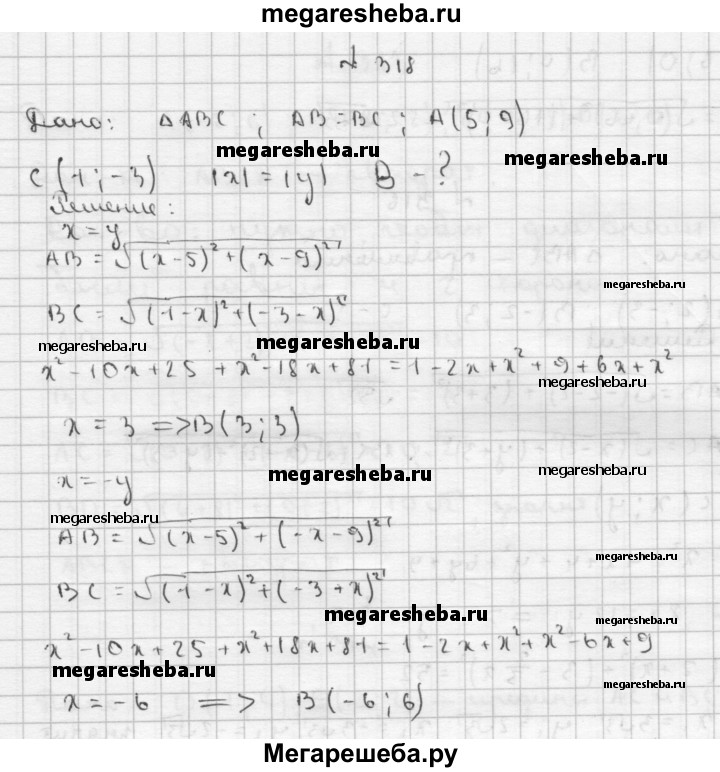 megaresheba.ru
№ 318
Дано: ΔABC; AB=BC; A(5;9)
megaresheba.ru megaresheba.ru
C(1;-3) |x|=|y| B-?
Решение:
x=y
AB=√(x-5)²+(x-9)²
megaresheba.ru
BC=√(1-x)²+(-3-x)²
megaresheba.ru megaresheba.ru
x²-10x+25+x²-18x+81=1-2x+x²+9+6x+x²
megaresheba.ru
x=3=>B(3;3)
megaresheba.ru megaresheba.ru
x=-y
megaresheba.ru
AB=√(x-5)²+(-x-9)²
megaresheba.ru
BC=√(1-x)²+(-3+x)²
megaresheba.ru megaresheba.ru
x²-10x+25+x²+18x+81=1-2x+x²+x²-6x+9
megaresheba.ru megaresheba.ru
x=-6 => B(-6;6)
Мегарешеба.ру